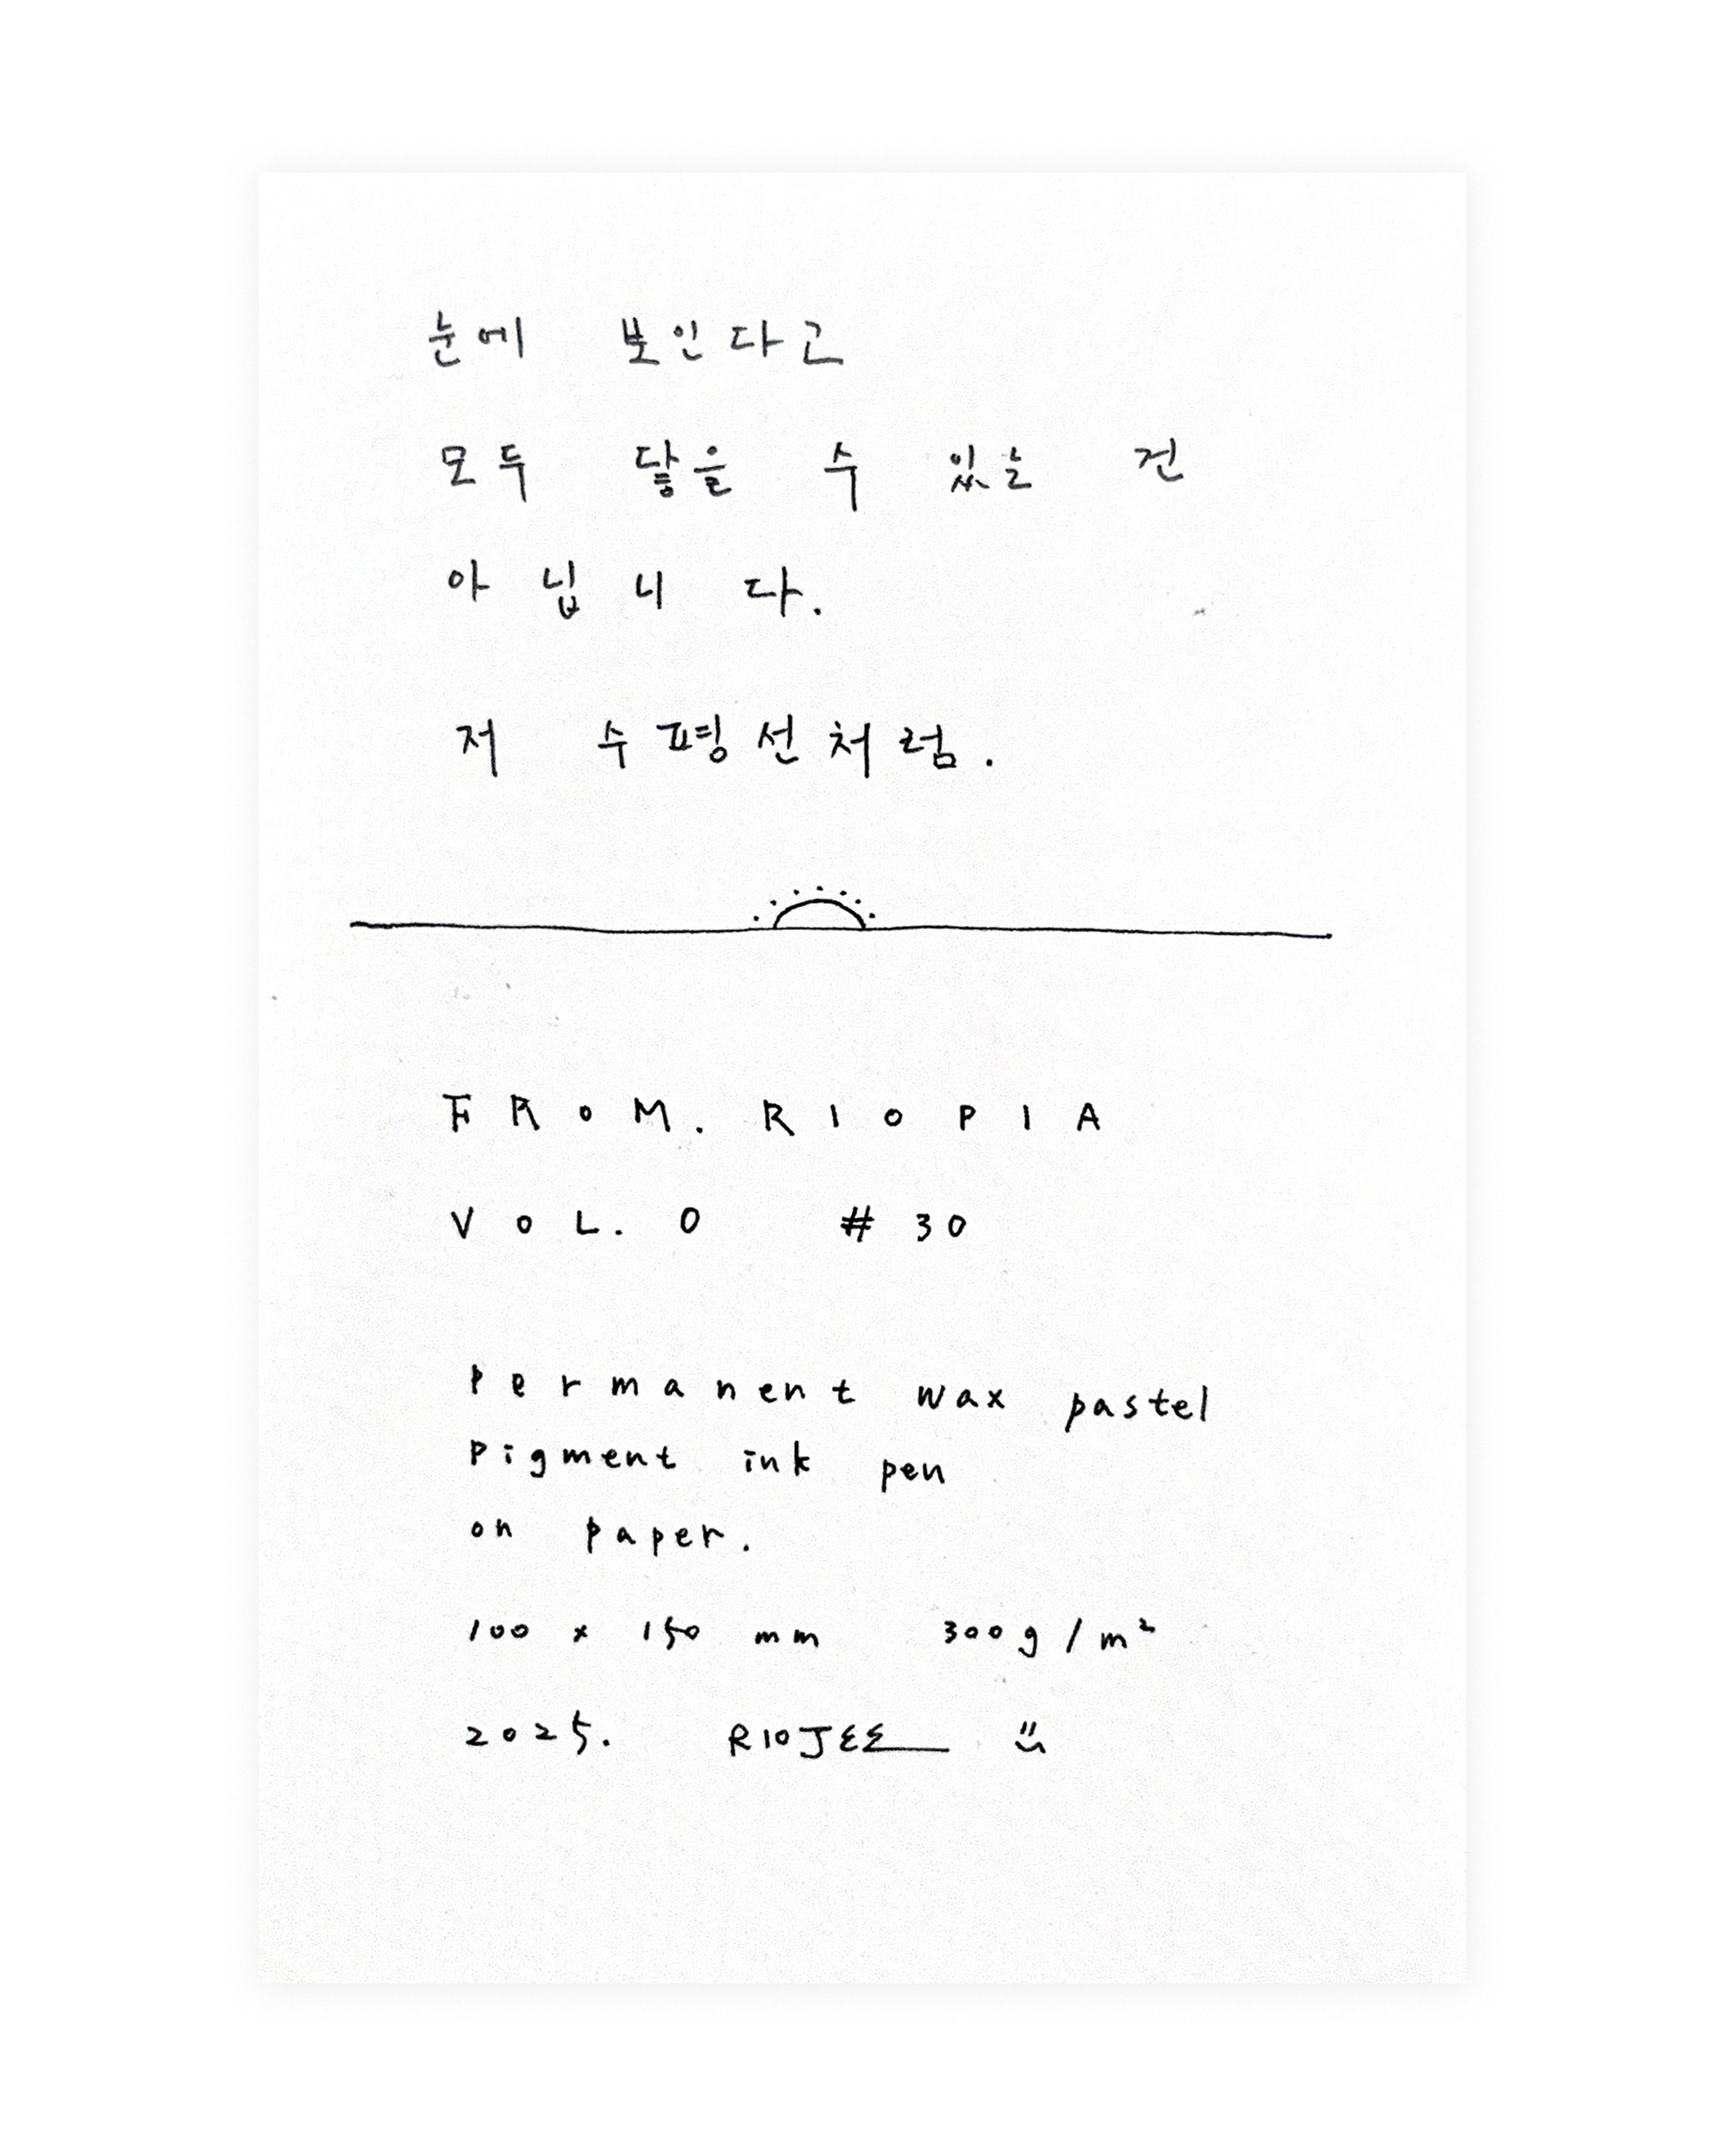 눈에 보인다고
모두 닿을 수 있는 건
아닙니다.
저 수평선처럼.
FROM. RIOPIA
VOL. 0 #30
Permanent wax pastel
Pigment ink pen
on paper.
100 x 150 mm 300g/m²
2025. RIOJEE